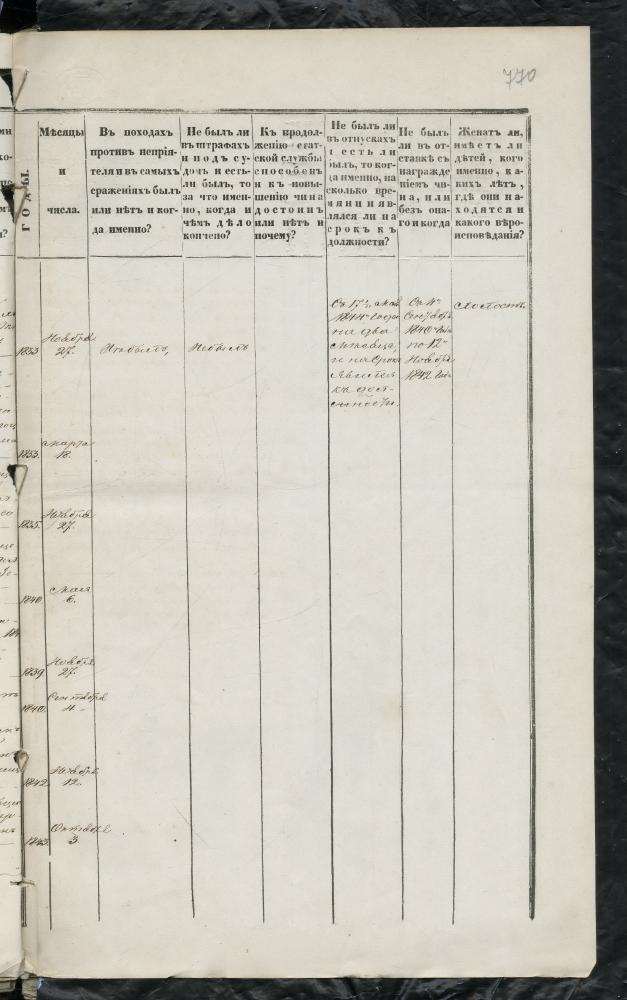 770
ГОДЫ.
Мѣсяцы
и
числа.
Въ походахъ
противъ непрія-
теля и въ самыхъ
сраженіяхъ былъ
или нѣтъ и ког-
да именно?
Не былъ ли
въ штрафахъ
и подъ су-
домъ и есть-
ли былъ, то
за что имен-
но, когда и
чѣмъ дѣло
кончено?
Къ продол-
женію стат-
ской службы
способенъ
и къ повы-
шенію чина
достоинъ
или нѣтъ и
почему?
Не былъ ли
въ отпускахъ
и есть ли
былъ, то ког-
да именно, на
сколько вре-
мяни и яв-
лялся ли на
срокъ къ
должности?
Не былъ
ли въ от-
ставкѣ съ
награжде-
ніемъ чи-
на, или
безъ она-
го и когда
Женатъ ли,
имѣетъ ли
дѣтей, кого
именно, ка-
кихъ лѣтъ,
гдѣ они на-
ходятся и
какого вѣро-
исповѣданія?
1833 Ноября
27.
Не былъ
1844 года
на два
мѣсяца,
и на срокъ
явился
къ долж-
ности.
Съ 4
Сентября
1840 года
по 12
Ноября
1842 года
Холостъ.
1833. Марта
18.
1835. Ноября
27.
1840. Мая
6.
1839 Ноября
27.
1840. Сентября
4.
1842 Ноября
12.
1843. Октября
3.